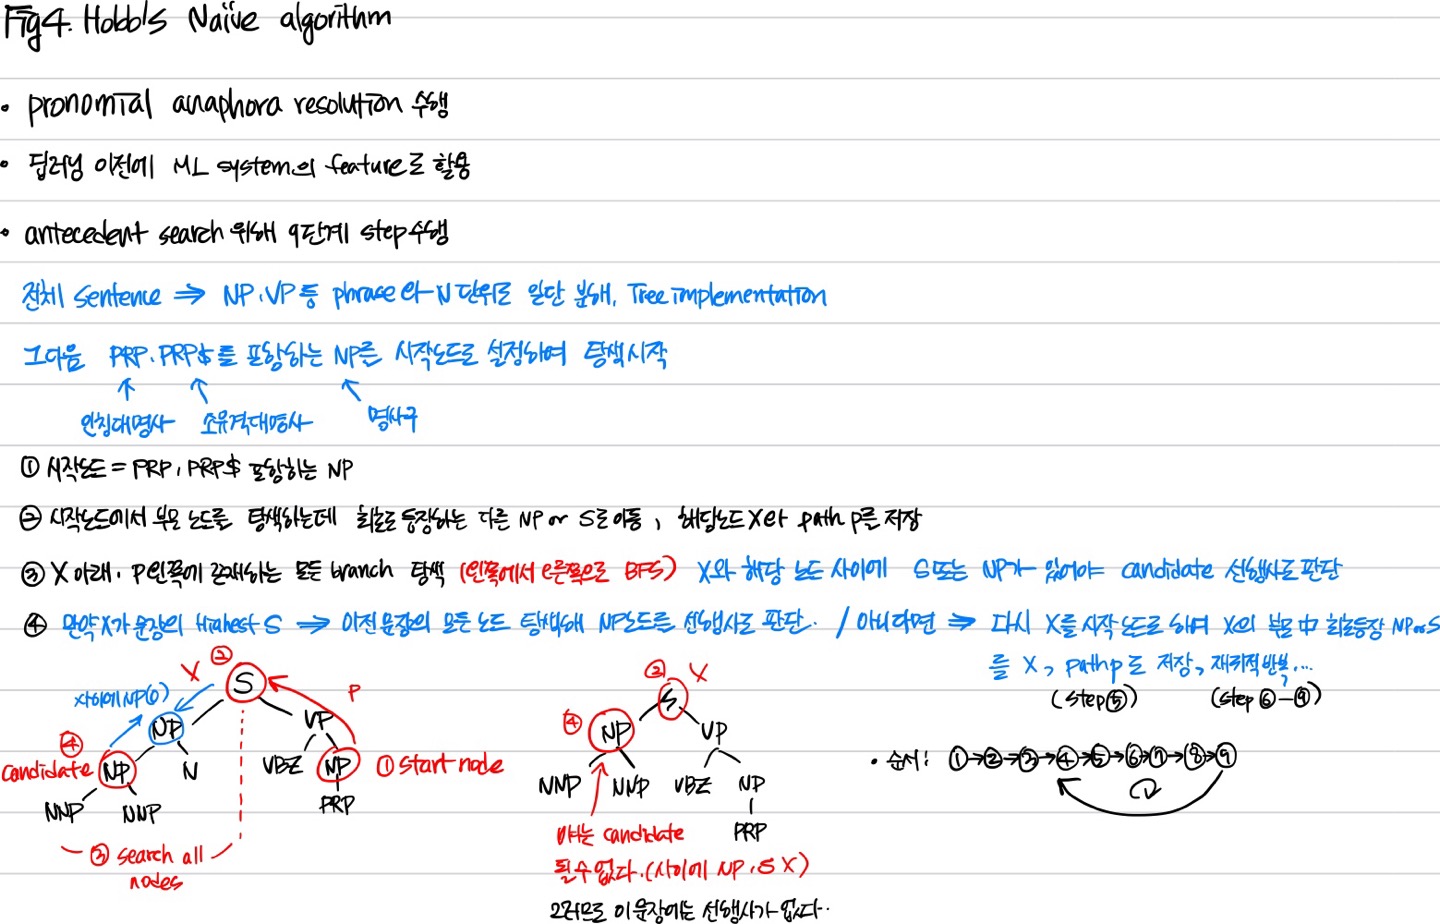 Fig4. Hobb's Naïve algorithm
• pronomial anaphora resolution 수행
• 딥러닝 이전에 ML system의 feature로 활용
• antecedent search 위해 9단계 step 수행
전체 sentence ⇒ NP, VP 등 phrase와 N 단위로 일단 분해, Tree implementation
그다음 PRP, PRP$를 포함하는 NP를 시작노드로 설정하여 탐색 시작
인칭대명사 소유격대명사 명사구
① 시작노드 = PRP, PRP$ 포함하는 NP
② 시작노드에서 부모 노드를 탐색하는데 최초로 등장하는 다른 NP or S로 이동, 해당노드 X와 path p를 저장
③ X 아래, P 왼쪽에 존재하는 모든 branch 탐색 (왼쪽에서 오른쪽으로 BFS) X와 해당 노드 사이에 S또는 NP가 있어야 candidate 선행사로 판단
④ 만약 X가 문장의 Highest S ⇒ 이전 문장의 모든 노드 탐색해 NP노드를 선행사로 판단. / 아니라면 ⇒ 다시 X를 시작노드로 하여 X의 부모 中 최초등장 NP or S
를 X, path p로 저장, 재귀적 반복...
(step⑤) (step ⑥-⑨)
② X S P
사이에 NP(o)
NP VP
④ candidate NP N VBZ NP ① start node
NNP NNP PRP
③ search all nodes
② X S
④ NP VP
NNP NNP VBZ NP
PRP
얘는 candidate
될 수 없다. (사이에 NP, S X)
그러므로 이 문장에는 선행사가 없다..
• 순서: ①→②→③→④→⑤→⑥→⑦→⑧→⑨